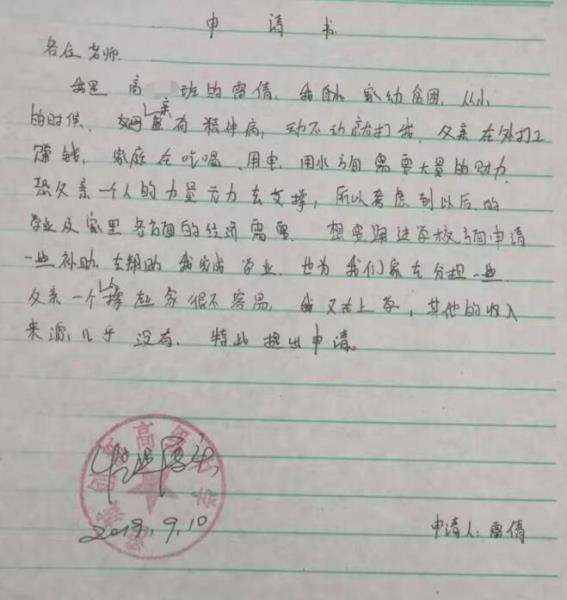 申请书
各位老师
我是高 班的雷倩,我自 家幼贫困,从小
的时候,母亲有精神病,动不动就打我,父亲在外打工
赚钱,家庭在吃喝、用电、用水方面需要大量的动力,
恐父亲一个人的力量无力去支撑,所以考虑到以后的
学业及家里各方面的经济需要,想要跟进学校方面申请
一些补助,去帮助我完成学业,也为我们家去分担一些
父亲一个人撑起家很不容易,我又在上学,其他的收入
来源几乎没有,特此提出申请。
高级中学
2019.9.10
申请人:雷倩